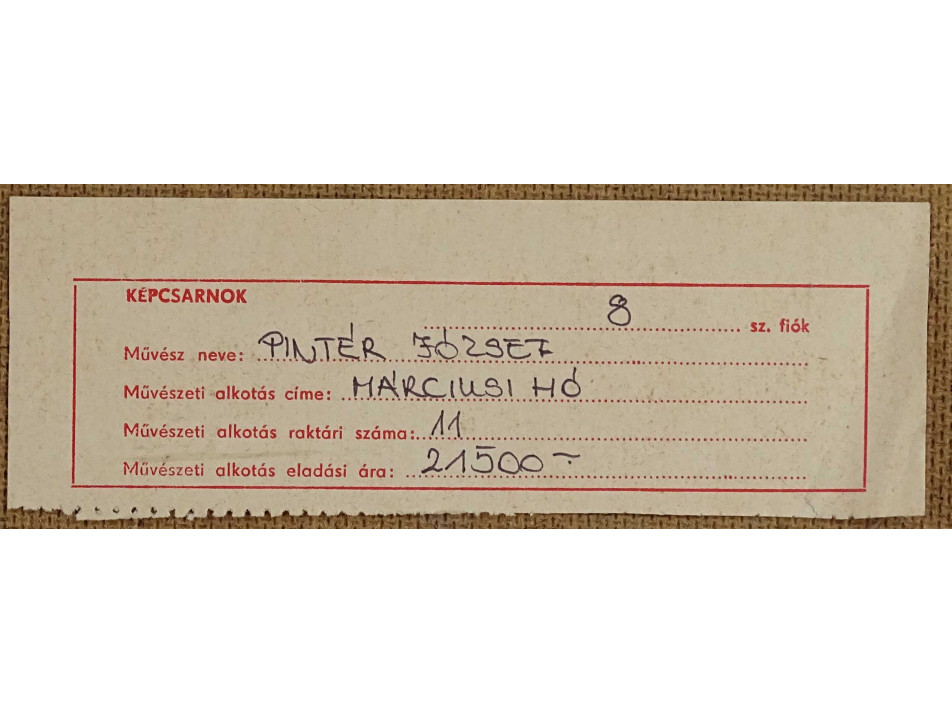 KÉPCSARNOK
8 sz. fiók
Művész neve: PINTÉR JÓZSEF
Művészeti alkotás címe: MÁRCIUSI HÓ
Művészeti alkotás raktári száma: 11
Művészeti alkotás eladási ára: 21500-